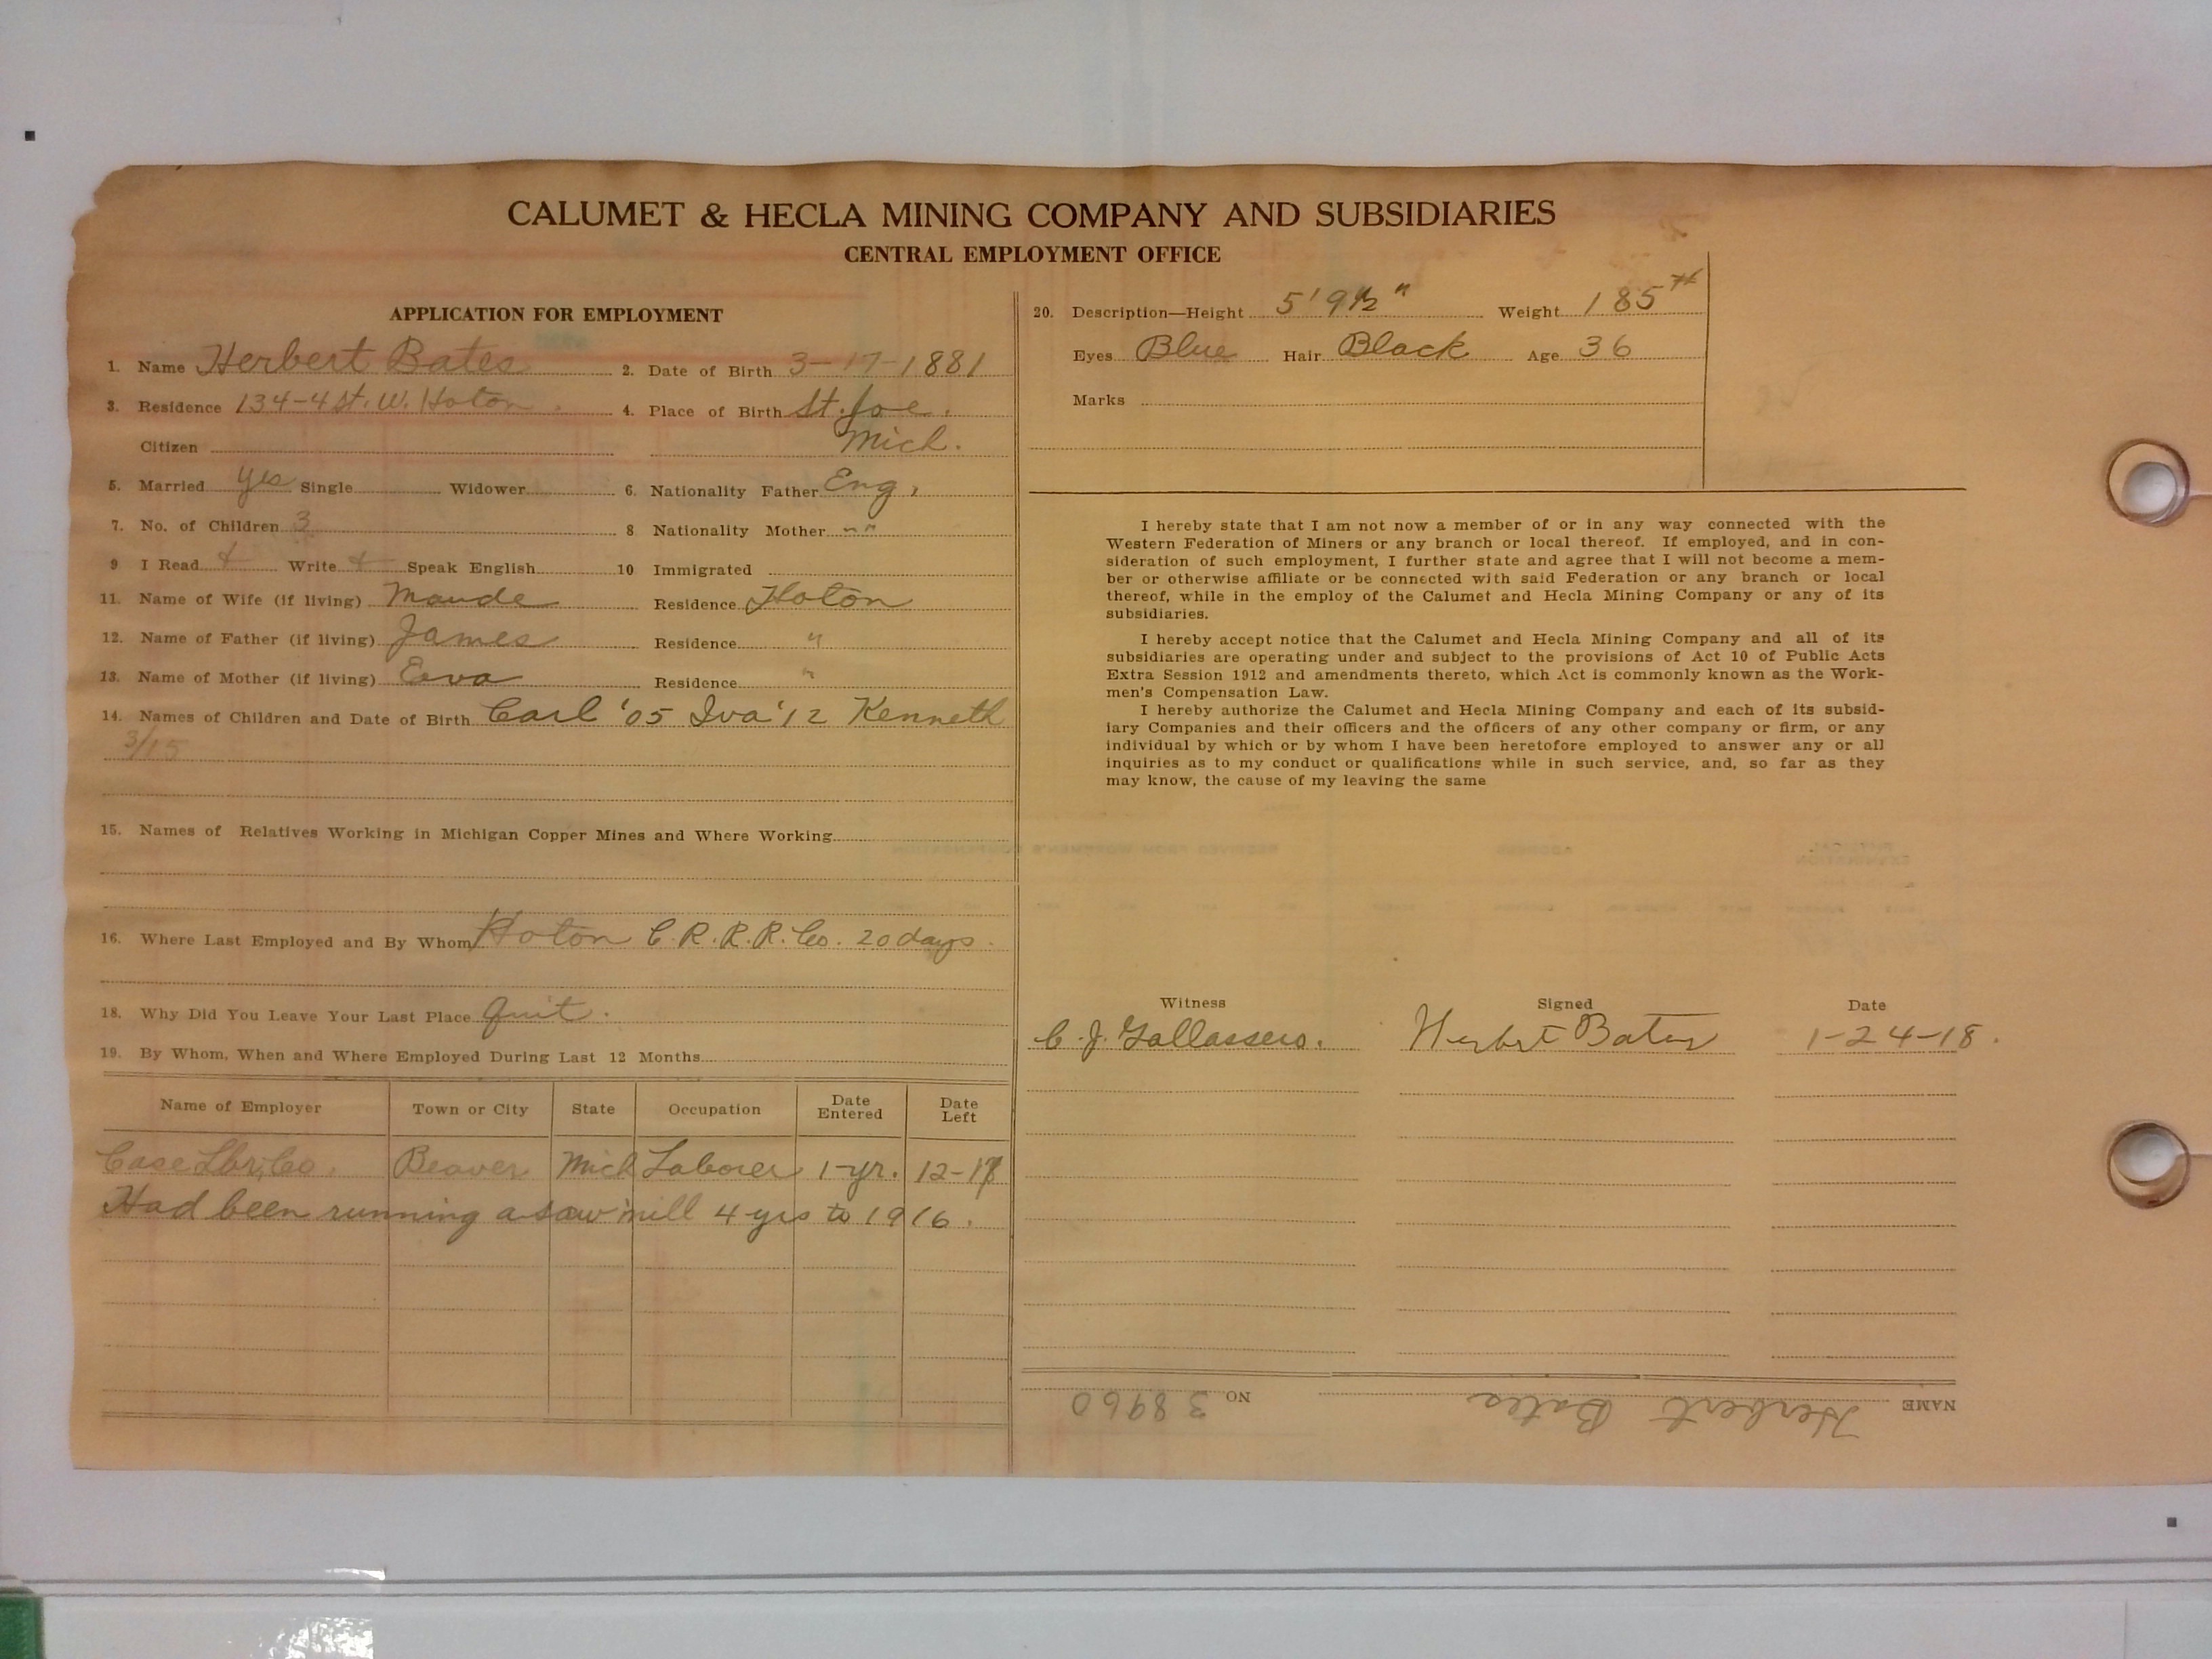 CALUMET & HECLA MINING COMPANY AND SUBSIDIARIES
CENTRAL EMPLOYMENT OFFICE
APPLICATION FOR EMPLOYMENT
1. Name Herbert Bates 2. Date of Birth 3-17-1881
3. Residence 134-4 St. W. Hoton 4. Place of Birth St. Joe.
Citizen Mich.
5. Married yes Single Widower 6. Nationality Father Eng.
7. No. of Children 3 8 Nationality Mother " "
9 I Read + Write + Speak English 10 Immigrated
11. Name of Wife (if living) Maude Residence Hoton
12. Name of Father (if living) James Residence "
13. Name of Mother (if living) Eava Residence "
14. Names of Children and Date of Birth Carl '05 Iva '12 Kenneth
3/15
15. Names of Relatives Working in Michigan Copper Mines and Where Working
16. Where Last Employed and By Whom Hoton C.R.R.R. Co. 20 days.
18. Why Did You Leave Your Last Place Quit.
19. By Whom, When and Where Employed During Last 12 Months
Name of Employer Town or City State Occupation Date Entered Date Left
Case Lbr. Co. Beaver Mich Laborer 1-yr. 12-17
Had been running a saw mill 4 yrs to 1916.
20. Description—Height 5' 9 1/2" Weight 185 #
Eyes Blue Hair Black Age 36
Marks
I hereby state that I am not now a member of or in any way connected with the
Western Federation of Miners or any branch or local thereof. If employed, and in con-
sideration of such employment, I further state and agree that I will not become a mem-
ber or otherwise affiliate or be connected with said Federation or any branch or local
thereof, while in the employ of the Calumet and Hecla Mining Company or any of its
subsidiaries.
I hereby accept notice that the Calumet and Hecla Mining Company and all of its
subsidiaries are operating under and subject to the provisions of Act 10 of Public Acts
Extra Session 1912 and amendments thereto, which Act is commonly known as the Work-
men's Compensation Law.
I hereby authorize the Calumet and Hecla Mining Company and each of its subsid-
iary Companies and their officers and the officers of any other company or firm, or any
individual by which or by whom I have been heretofore employed to answer any or all
inquiries as to my conduct or qualifications while in such service, and, so far as they
may know, the cause of my leaving the same
Witness Signed Date
C. J. Herbert Bates 1-24-18.
NAME Herbert Bates NO 38960